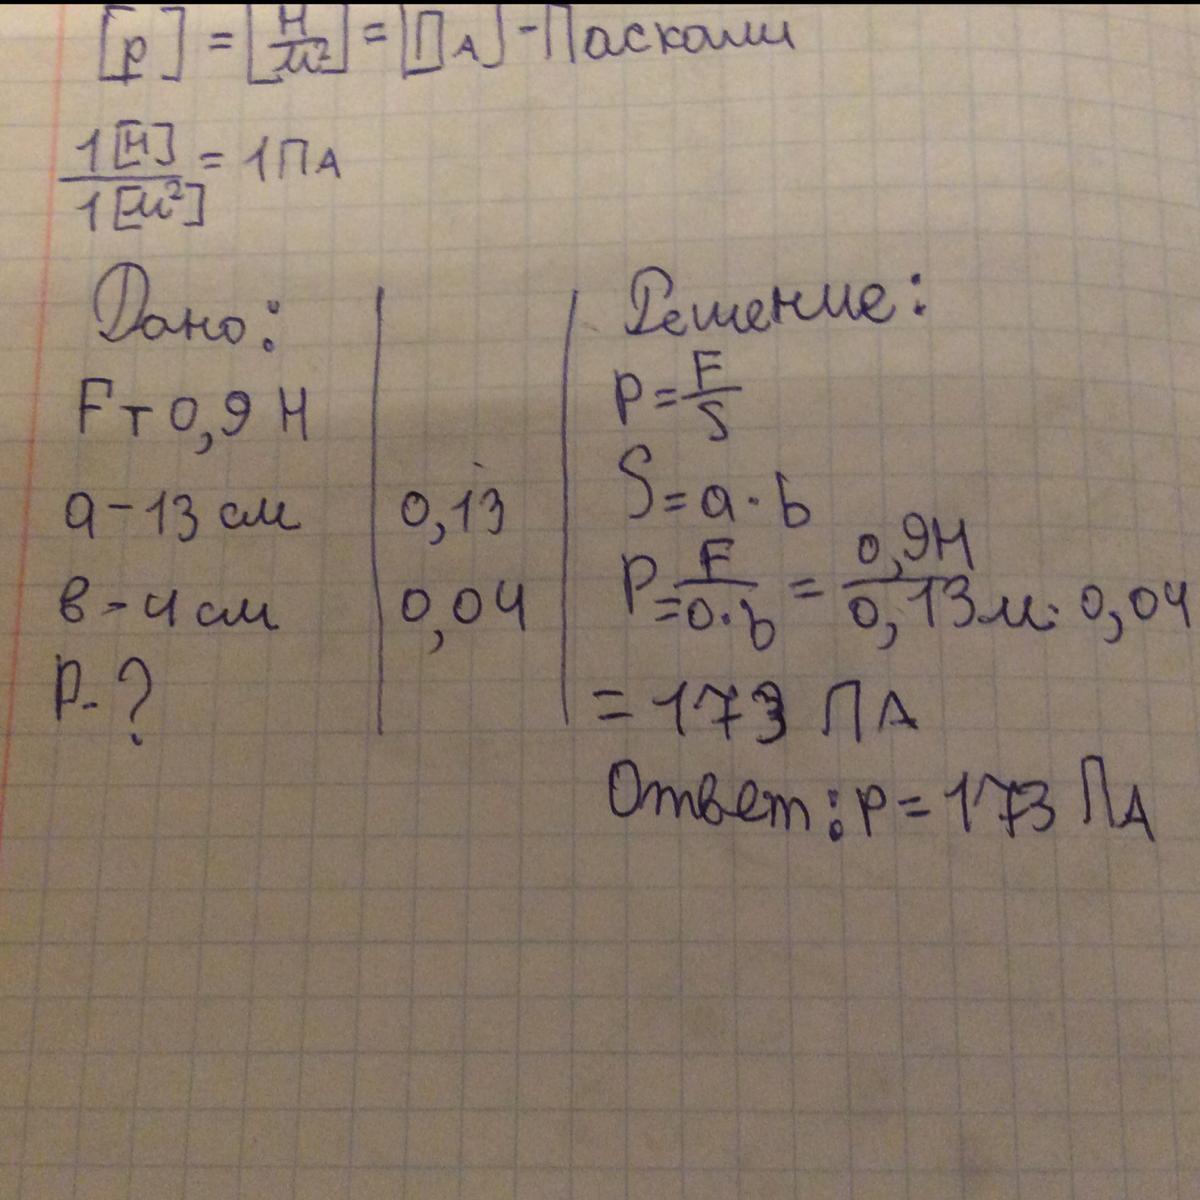 [p] = [Н/м²] = [ПА] - Паскали
1[Н]/1[м²] = 1 ПА
Дано:
Fт 0,9 Н
a - 13 см
0,13
в - 4 см
0,04
P - ?
Решение:
P = F/S
S = a · b
P = F/a·b = 0,9Н/0,13м · 0,04
= 173 ПА
Ответ: p = 173 ПА